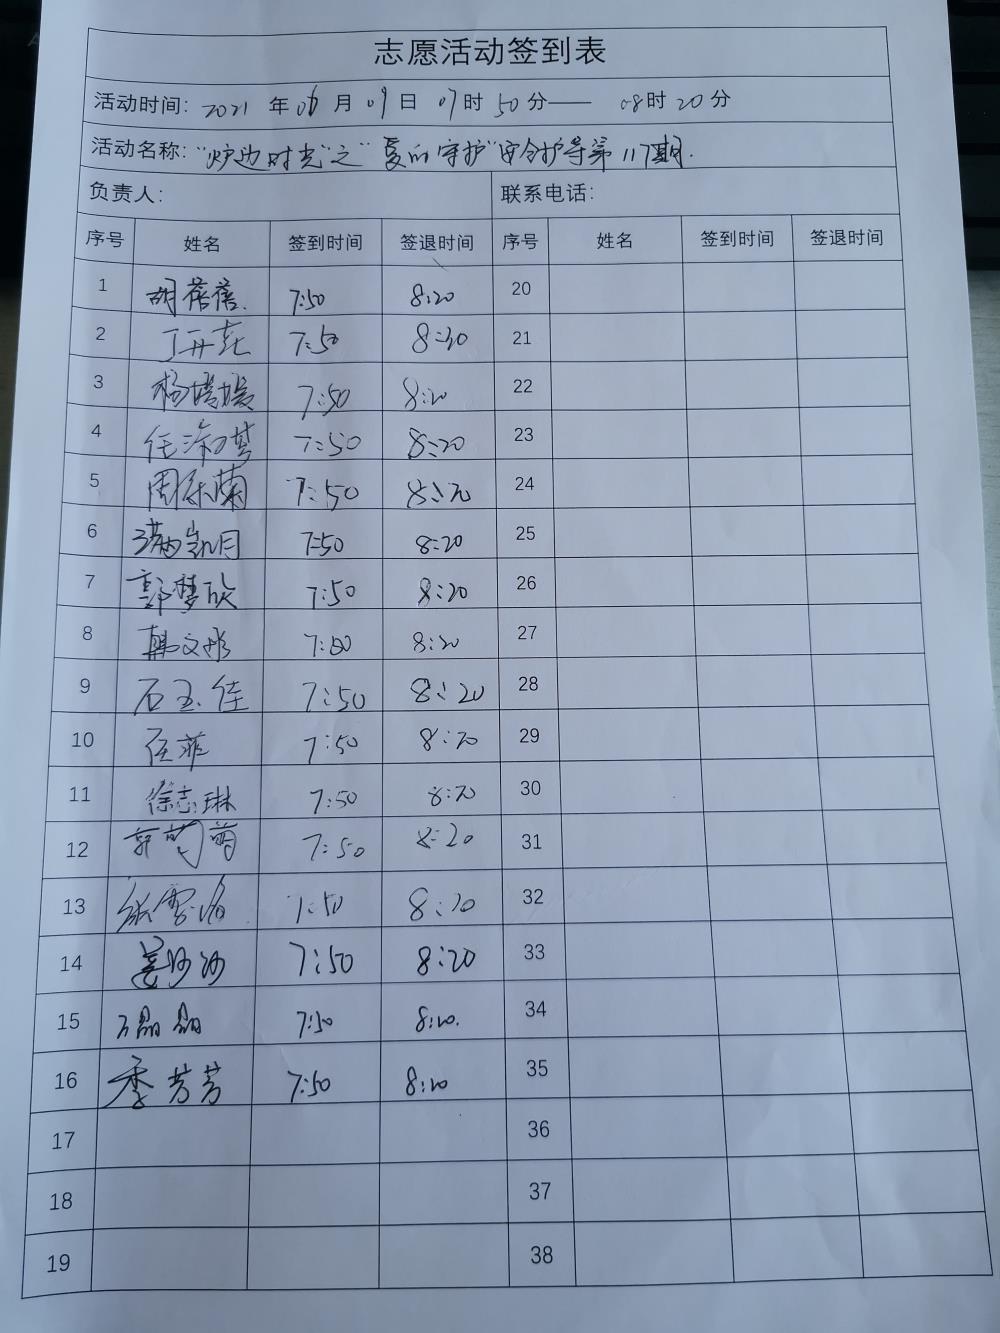 志愿活动签到表
活动时间: 2021 年 06 月 09 日 07时 50分—— 08时 20分
活动名称: "炉边时光"之"爱的守护"安全护导第117期.
负责人: 联系电话:
序号 姓名 签到时间 签退时间 序号 姓名 签到时间 签退时间
1 胡蓓蓓. 7:50 8:20 20
2 7:50 8:20 21
3 杨媛媛 7:50 8:20 22
4 7:50 8:20 23
5 7:50 8:20 24
6 满凯月 7:50 8:20 25
7 郭梦欣 7:50 8:20 26
8 韩文彤 7:50 8:20 27
9 石玉佳 7:50 8:20 28
10 任菲 7:50 8:20 29
11 徐志琳 7:50 8:20 30
12 7:50 8:20 31
13 7:50 8:20 32
14 7:50 8:20 33
15 7:50 8:20. 34
16 季芳芳 7:50 8:20 35
17 36
18 37
19 38